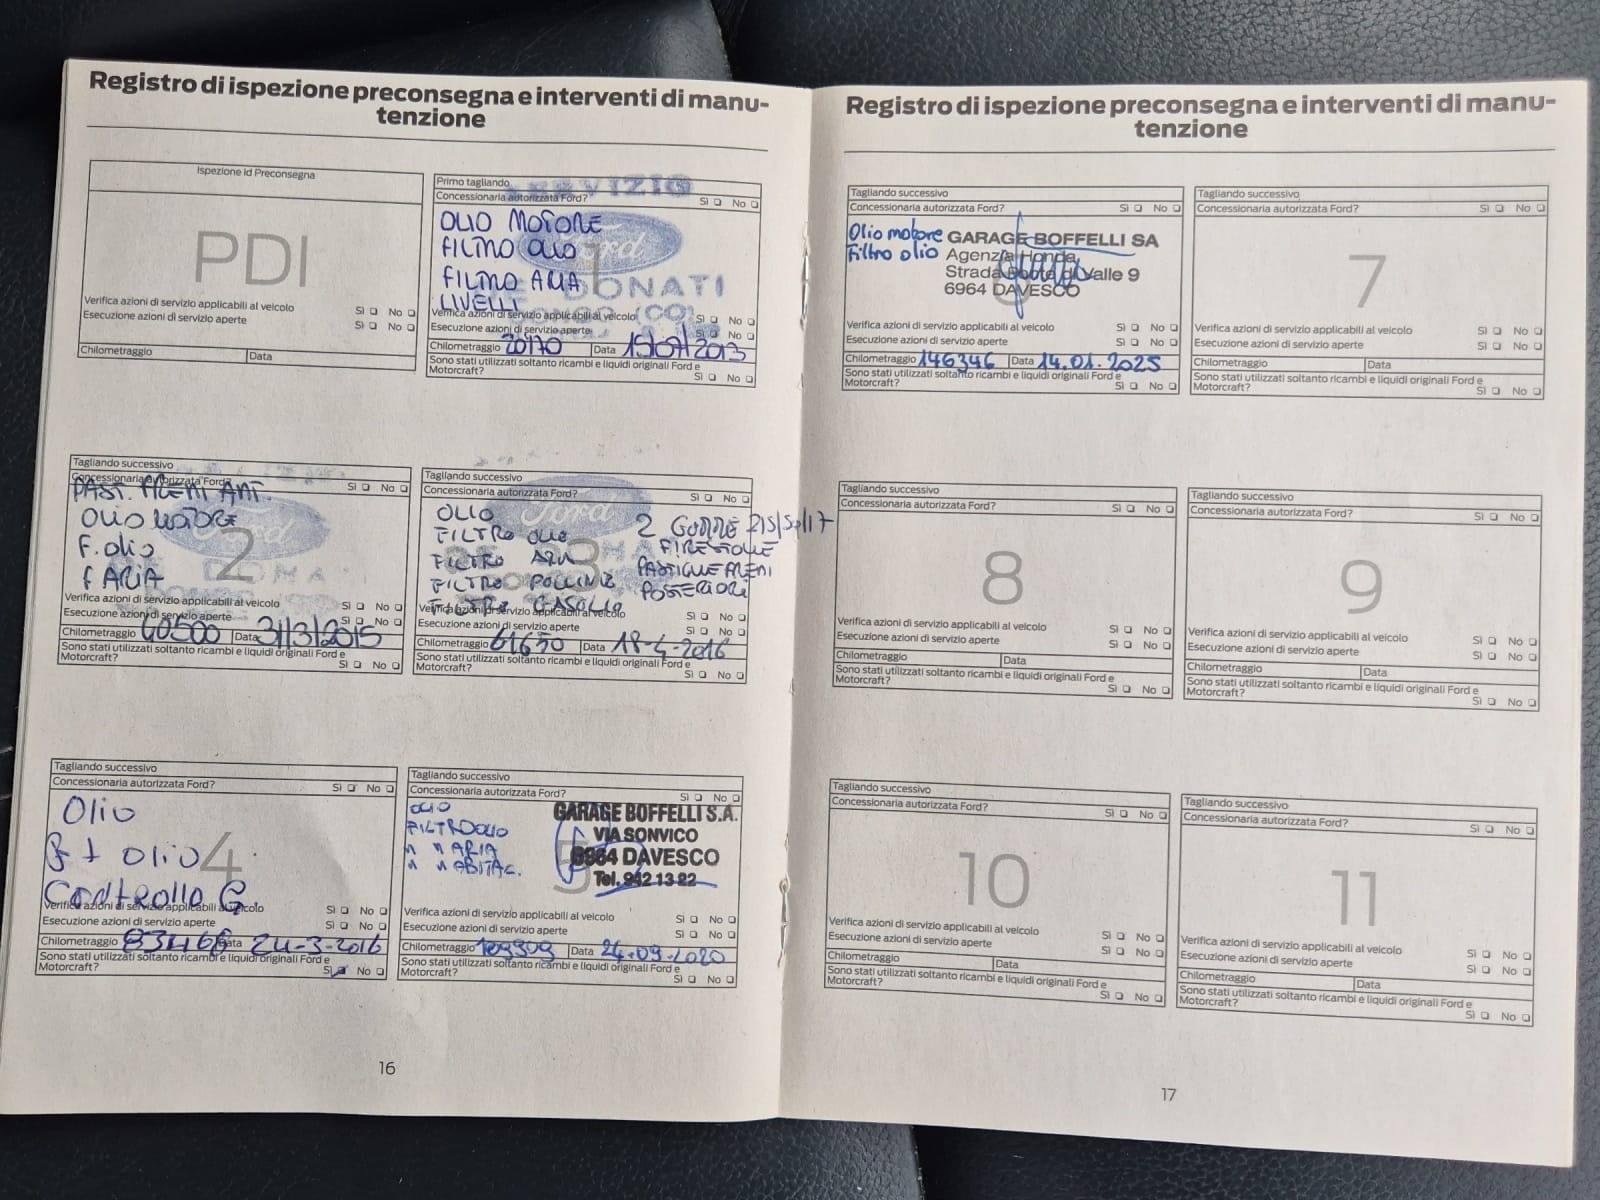 Registro di ispezione preconsegna e interventi di manu-
tenzione
Ispezione id Preconsegna
PDI
Verifica azioni di servizio applicabili al veicolo Sì No
Esecuzione azioni di servizio aperte Sì No
Chilometraggio Data
Primo tagliando
SERVIZIO
Concessionaria autorizzata Ford? Sì No
OLIO MOTORE
FILTRO OLIO
Ford
1
FILTRO ARIA
DONATI
LIVELLI
(CO)
Verifica azioni di servizio applicabili al veicolo Sì No
Esecuzione azioni di servizio aperte Sì No
Chilometraggio 20170 Data 15/07/2013
Sono stati utilizzati soltanto ricambi e liquidi originali Ford e
Motorcraft? Sì No
Tagliando successivo
Concessionaria autorizzata Ford? Sì No
PAST. FRENI ANT.
OLIO MOTORE
Ford
F. olio
2
F ARIA
Verifica azioni di servizio applicabili al veicolo Sì No
Esecuzione azioni di servizio aperte Sì No
Chilometraggio 40500 Data 31/3/2015
Sono stati utilizzati soltanto ricambi e liquidi originali Ford e
Motorcraft? Sì No
Tagliando successivo
Concessionaria autorizzata Ford? Sì No
OLIO
Ford
FILTRO OLIO
FILTRO ARIA
3
FILTRO POLLINE
FILTRO GASOLIO
2 GOMME 215/50/17
FIRESTONE
PASTIGLIE FRENI
POSTERIORI
Verifica azioni di servizio applicabili al veicolo Sì No
Esecuzione azioni di servizio aperte Sì No
Chilometraggio 61650 Data 18-4-2016
Sono stati utilizzati soltanto ricambi e liquidi originali Ford e
Motorcraft? Sì No
Tagliando successivo
Concessionaria autorizzata Ford? Sì No
Olio
olio
4
Controllo G
Verifica azioni di servizio applicabili al veicolo Sì No
Esecuzione azioni di servizio aperte Sì No
Chilometraggio 83466 Data 24-3-2016
Sono stati utilizzati soltanto ricambi e liquidi originali Ford e
Motorcraft? Sì No
Tagliando successivo
Concessionaria autorizzata Ford? Sì No
OLIO
FILTRO OLIO
" " ARIA
" " ABITAC.
GARAGE BOFFELLI S.A.
VIA SONVICO
6964 DAVESCO
Tel. 942 13 22
5
Verifica azioni di servizio applicabili al veicolo Sì No
Esecuzione azioni di servizio aperte Sì No
Chilometraggio 109309 Data 24.09.2020
Sono stati utilizzati soltanto ricambi e liquidi originali Ford e
Motorcraft? Sì No
16
Registro di ispezione preconsegna e interventi di manu-
tenzione
Tagliando successivo
Concessionaria autorizzata Ford? Sì No
Olio motore
Filtro olio
GARAGE BOFFELLI SA
Agenzia Honda
Strada Boote di Valle 9
6964 DAVESCO
Verifica azioni di servizio applicabili al veicolo Sì No
Esecuzione azioni di servizio aperte Sì No
Chilometraggio 146346 Data 14.01.2025
Sono stati utilizzati soltanto ricambi e liquidi originali Ford e
Motorcraft? Sì No
Tagliando successivo
Concessionaria autorizzata Ford? Sì No
7
Verifica azioni di servizio applicabili al veicolo Sì No
Esecuzione azioni di servizio aperte Sì No
Chilometraggio Data
Sono stati utilizzati soltanto ricambi e liquidi originali Ford e
Motorcraft? Sì No
Tagliando successivo
Concessionaria autorizzata Ford? Sì No
8
Verifica azioni di servizio applicabili al veicolo Sì No
Esecuzione azioni di servizio aperte Sì No
Chilometraggio Data
Sono stati utilizzati soltanto ricambi e liquidi originali Ford e
Motorcraft? Sì No
Tagliando successivo
Concessionaria autorizzata Ford? Sì No
9
Verifica azioni di servizio applicabili al veicolo Sì No
Esecuzione azioni di servizio aperte Sì No
Chilometraggio Data
Sono stati utilizzati soltanto ricambi e liquidi originali Ford e
Motorcraft? Sì No
Tagliando successivo
Concessionaria autorizzata Ford? Sì No
10
Verifica azioni di servizio applicabili al veicolo Sì No
Esecuzione azioni di servizio aperte Sì No
Chilometraggio Data
Sono stati utilizzati soltanto ricambi e liquidi originali Ford e
Motorcraft? Sì No
Tagliando successivo
Concessionaria autorizzata Ford? Sì No
11
Verifica azioni di servizio applicabili al veicolo Sì No
Esecuzione azioni di servizio aperte Sì No
Chilometraggio Data
Sono stati utilizzati soltanto ricambi e liquidi originali Ford e
Motorcraft? Sì No
17